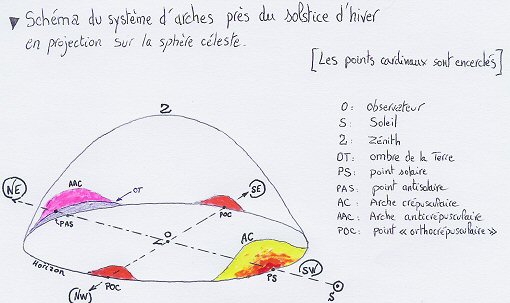 ▼ Schéma du système d'arches près du solstice d'hiver
en projection sur la sphère céleste.
[Les points cardinaux sont encerclés]
O : Observateur
S : Soleil
Z : Zénith
OT : ombre de la Terre
PS : point solaire
PAS : point antisolaire
AC : Arche crépusculaire
AAC : Arche anticrépusculaire
POC : point « orthocrépusculaire »
Z
NE
AAC
OT
SE
PAS
POC
O
AC
Horizon
NW
POC
PS
SW
S